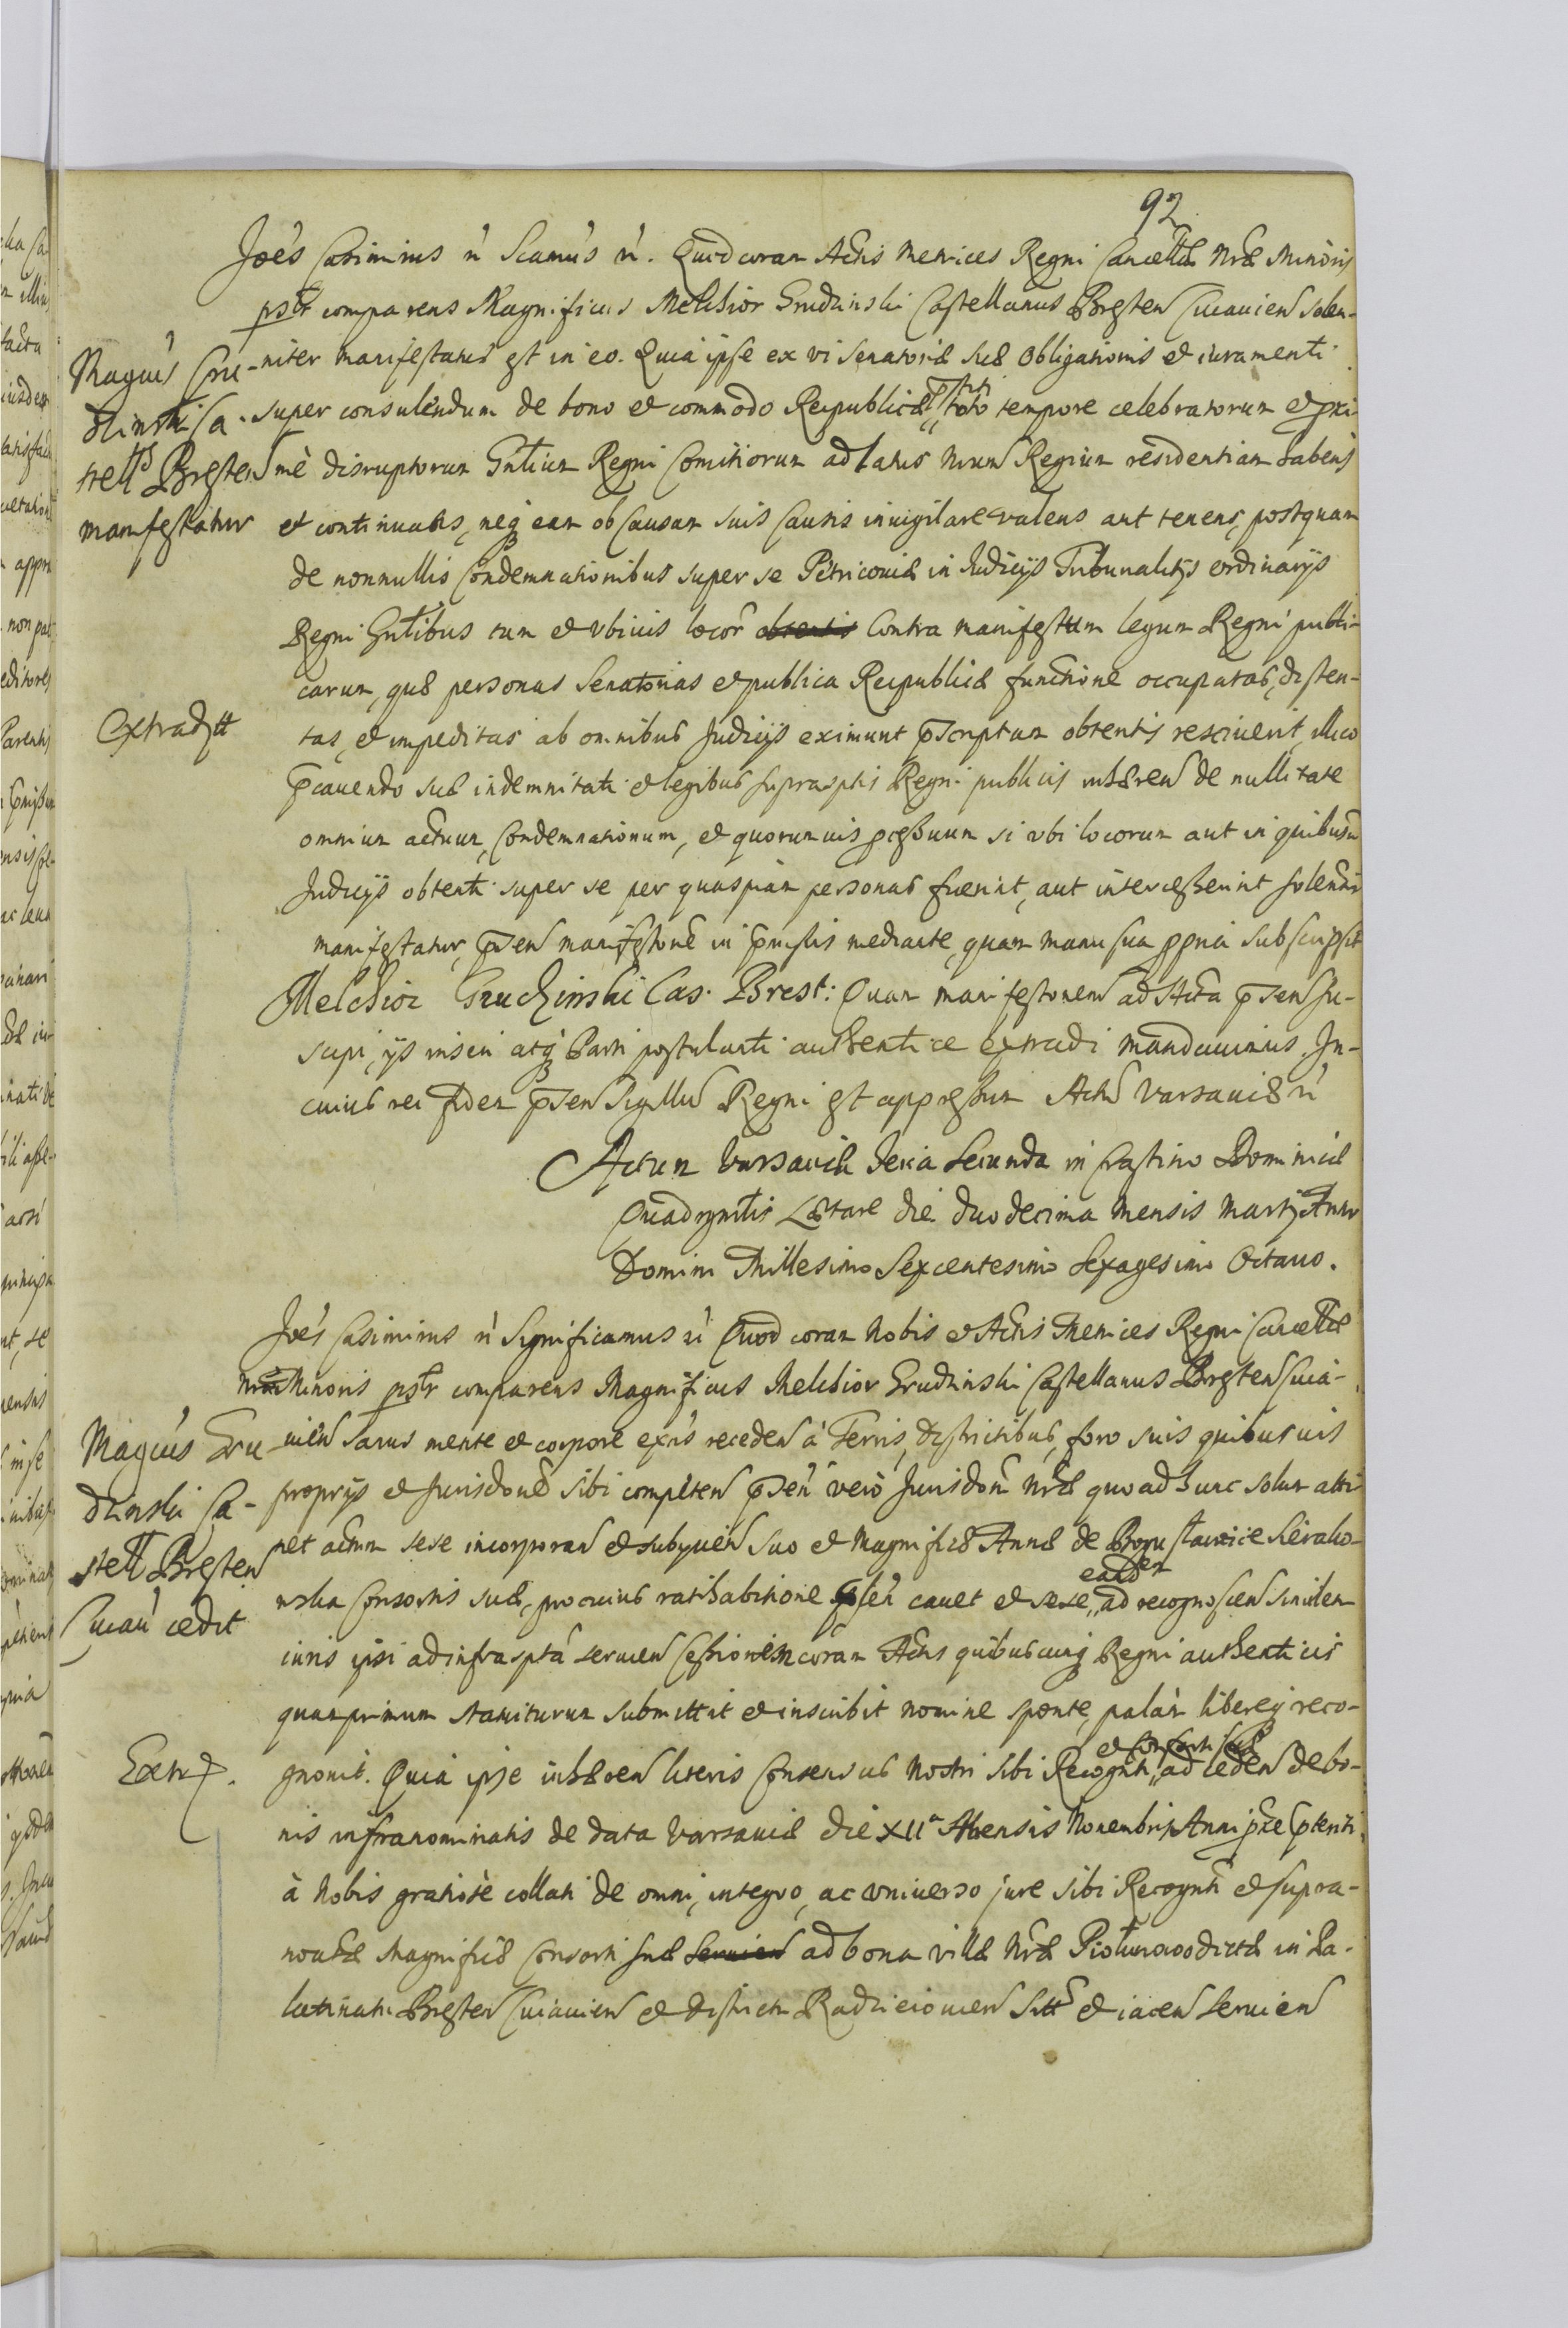 92
Joēs Casimirus n̄ Scamūs n̄. Quod coram Actis Metrices Regni Cancellae Nrae Minoris
psltr comparens Magnificus Melchior Grudzinski Castellanus Bresten Cuiavien solen-
niter manifestatus est in eo. Quia ipse ex vi senatoriae suae obligationis et iuramenti
super consulendum de bono et commodo Reipublicae, toto tempore celebratorum et proxi-
mè disruptorum Gnlium Regni Comitiorum ad latus nrum Regium residentiam habens
et continuans, neq eam ob causam suis causis invigilare valens aut tenens, postquam
de nonnullis Condemnationibus super se Petricoviae in Judicijs Tribunalitijs ordinarijs
Regni Gnlibus tum et ubivis locor obtentis Contra manifestum legum Regni publi-
carum, quae personas Senatorias et publica Reipublicae functione occupatas, disten-
tas, et impeditas ab omnibus Judicijs eximunt pscriptum obtentis resciverit, illico
pcavendo suae indemnitati et legibus suprasptis Regni publicis inhaeren de nullitate
omnium actuum, Condemnationum, et quorumvis pcessuum si ubi locorum aut in quibusvis
Judicijs obtenti super se per quaspiam personas fuerint, aut intercesserint solenniter
manifestatur, psen manifestone in pmissis mediante, quam manu sua ppria subscripsit
Melchior Grudzinski Cas. Brest: Quam manifestonem ad Acta psen su-
scipi, ijs inseri atq Parti postulanti authentice extradi mandavimus. In-
cuius rei fidem psen Sigillu Regni est appressum Actu Varsaviae n̄
Actum Varsaviae Feria Secunda in Crastino Dominicae
Quadragmlis Laetare die duodecima Mensis Martij Anno
Domini Millesimo Sexcentesimo Sexagesimo Octavo.
Joēs Casimirus n̄ Significamus n̄ Quod coram Nobis et Actis Metrices Regni Cancellae
Nrae Minoris psltr comparens Magnificus Melchior Grudzinski Castellanus Bresten Cuia-
vien sanus mente et corpore exns receden à Terris, districtibus, foro suis quibusvis
proprijs et Jurisdone sibi competen psen verò Jurisdoni nrae quo ad hunc solum atti-
net actum sese incorporan et subijcien suo et Magnificae Annae de Bogusławice Sierako-
nska Consortis suae, pro cuius ratihabitione psen cavet et sese eandem ad recognoscen similem
iuris ipsi ad infrasptā servien Cessionem coram Actis quibuscunq Regni authenticis
quamprimum staniturum submittit et inscribit nomine sponte, palàm libereq reco-
gnovit. Quia ipse inhaeren literis Consensus Nostri sibi Recognti et Consorti suae ad ceden de bo-
nis infranominatis de data Varsaviae die XIIa Mensis Novembris Anni pxe pteriti
à Nobis gratiosè collati de omni, integro, ac universo jure sibi Recognti et supra-
notae Magnificae Consorti suae servien ad bona villae Nrae Piotrowo dictae in Pa-
latinatu Bresten Cuiavien et districtu Radzieiovien Sitt et iacen servien
Magcus Gru-
dzinski Ca-
stells Bresten
manifestatur
Extradtt
Magcūs Gru
dzinski Ca-
stell Bresten
Cuiav cedit
Extrd.